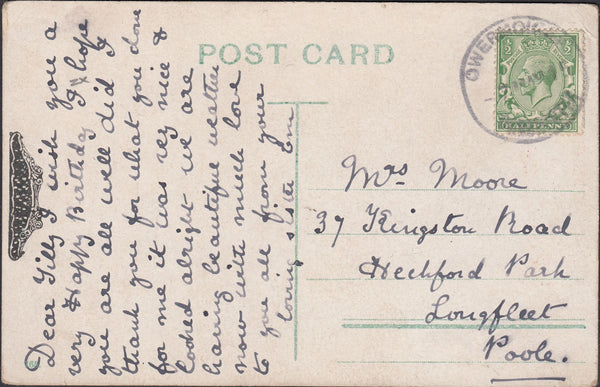 POST CARD
Dear Tilly I wish you a
very Happy Birthday & I hope
you are all well did I
thank you for what you done
for me it was very nice &
looked alright we are
having beautiful weather
now with much love
to you all from your
loving sister Em
HALFPENNY
Mrs Moore
37 Kingston Road
Heckford Park
Longfleet
Poole.